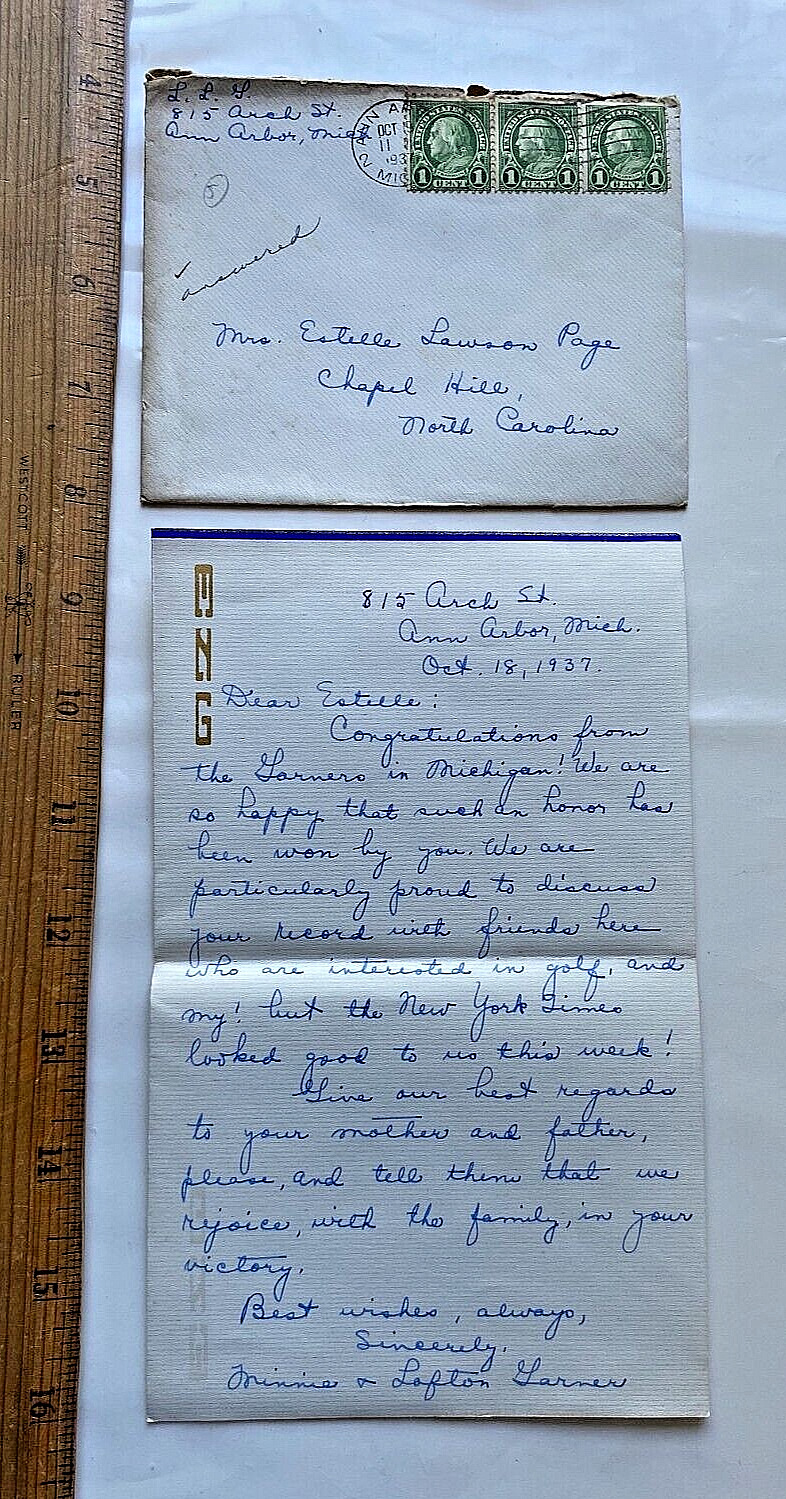 L. L. G.
815 Arch St.
Ann Arbor, Mich
ANN AR
2
OCT
11
193
MIC
UNITED STATES POSTAGE
1 CENT 1
UNITED STATES POSTAGE
1 CENT 1
UNITED STATES POSTAGE
1 CENT 1
5
answered
Mrs. Estelle Lawson Page
Chapel Hill,
North Carolina
4
5
6
7
8
9
10
11
12
13
14
15
16
WESTCOTT
RULER
M N G
815 Arch St.
Ann Arbor, Mich.
Oct. 18, 1937.
Dear Estelle:
Congratulations from
the Garners in Michigan! We are
so happy that such an honor has
been won by you. We are
particularly proud to discuss
your record with friends here
who are interested in golf, and
my! but the New York Times
looked good to us this week!
Give our best regards
to your mother and father,
please, and tell them that we
rejoice, with the family, in your
victory.
Best wishes, always,
Sincerely,
Minnie & Lofton Garner